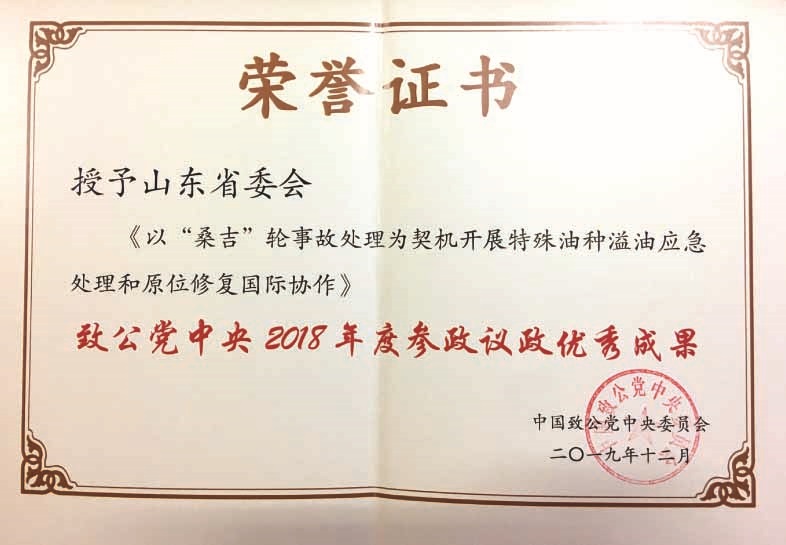 荣誉证书
授予山东省委会
《以“桑吉”轮事故处理为契机开展特殊油种溢油应急
处理和原位修复国际协作》
致公党中央2018年度参政议政优秀成果
中国致公党中央委员会
二〇一九年十二月
中国致公党中央委员会